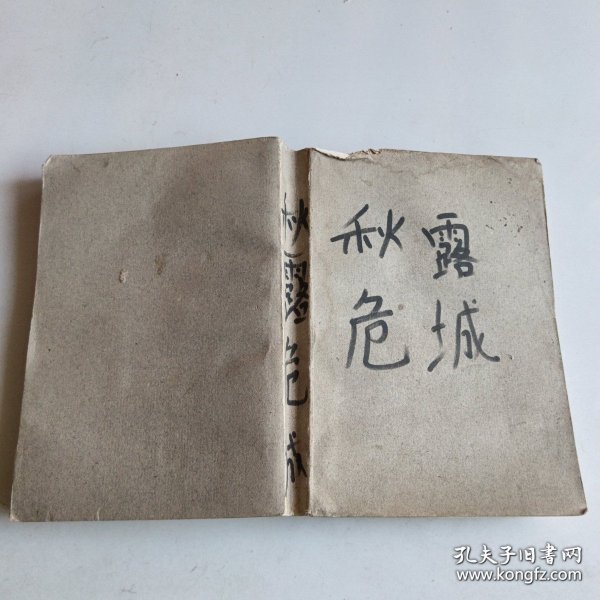 秋露危城
秋露
危城
孔夫子旧书网
www.kongfz.com